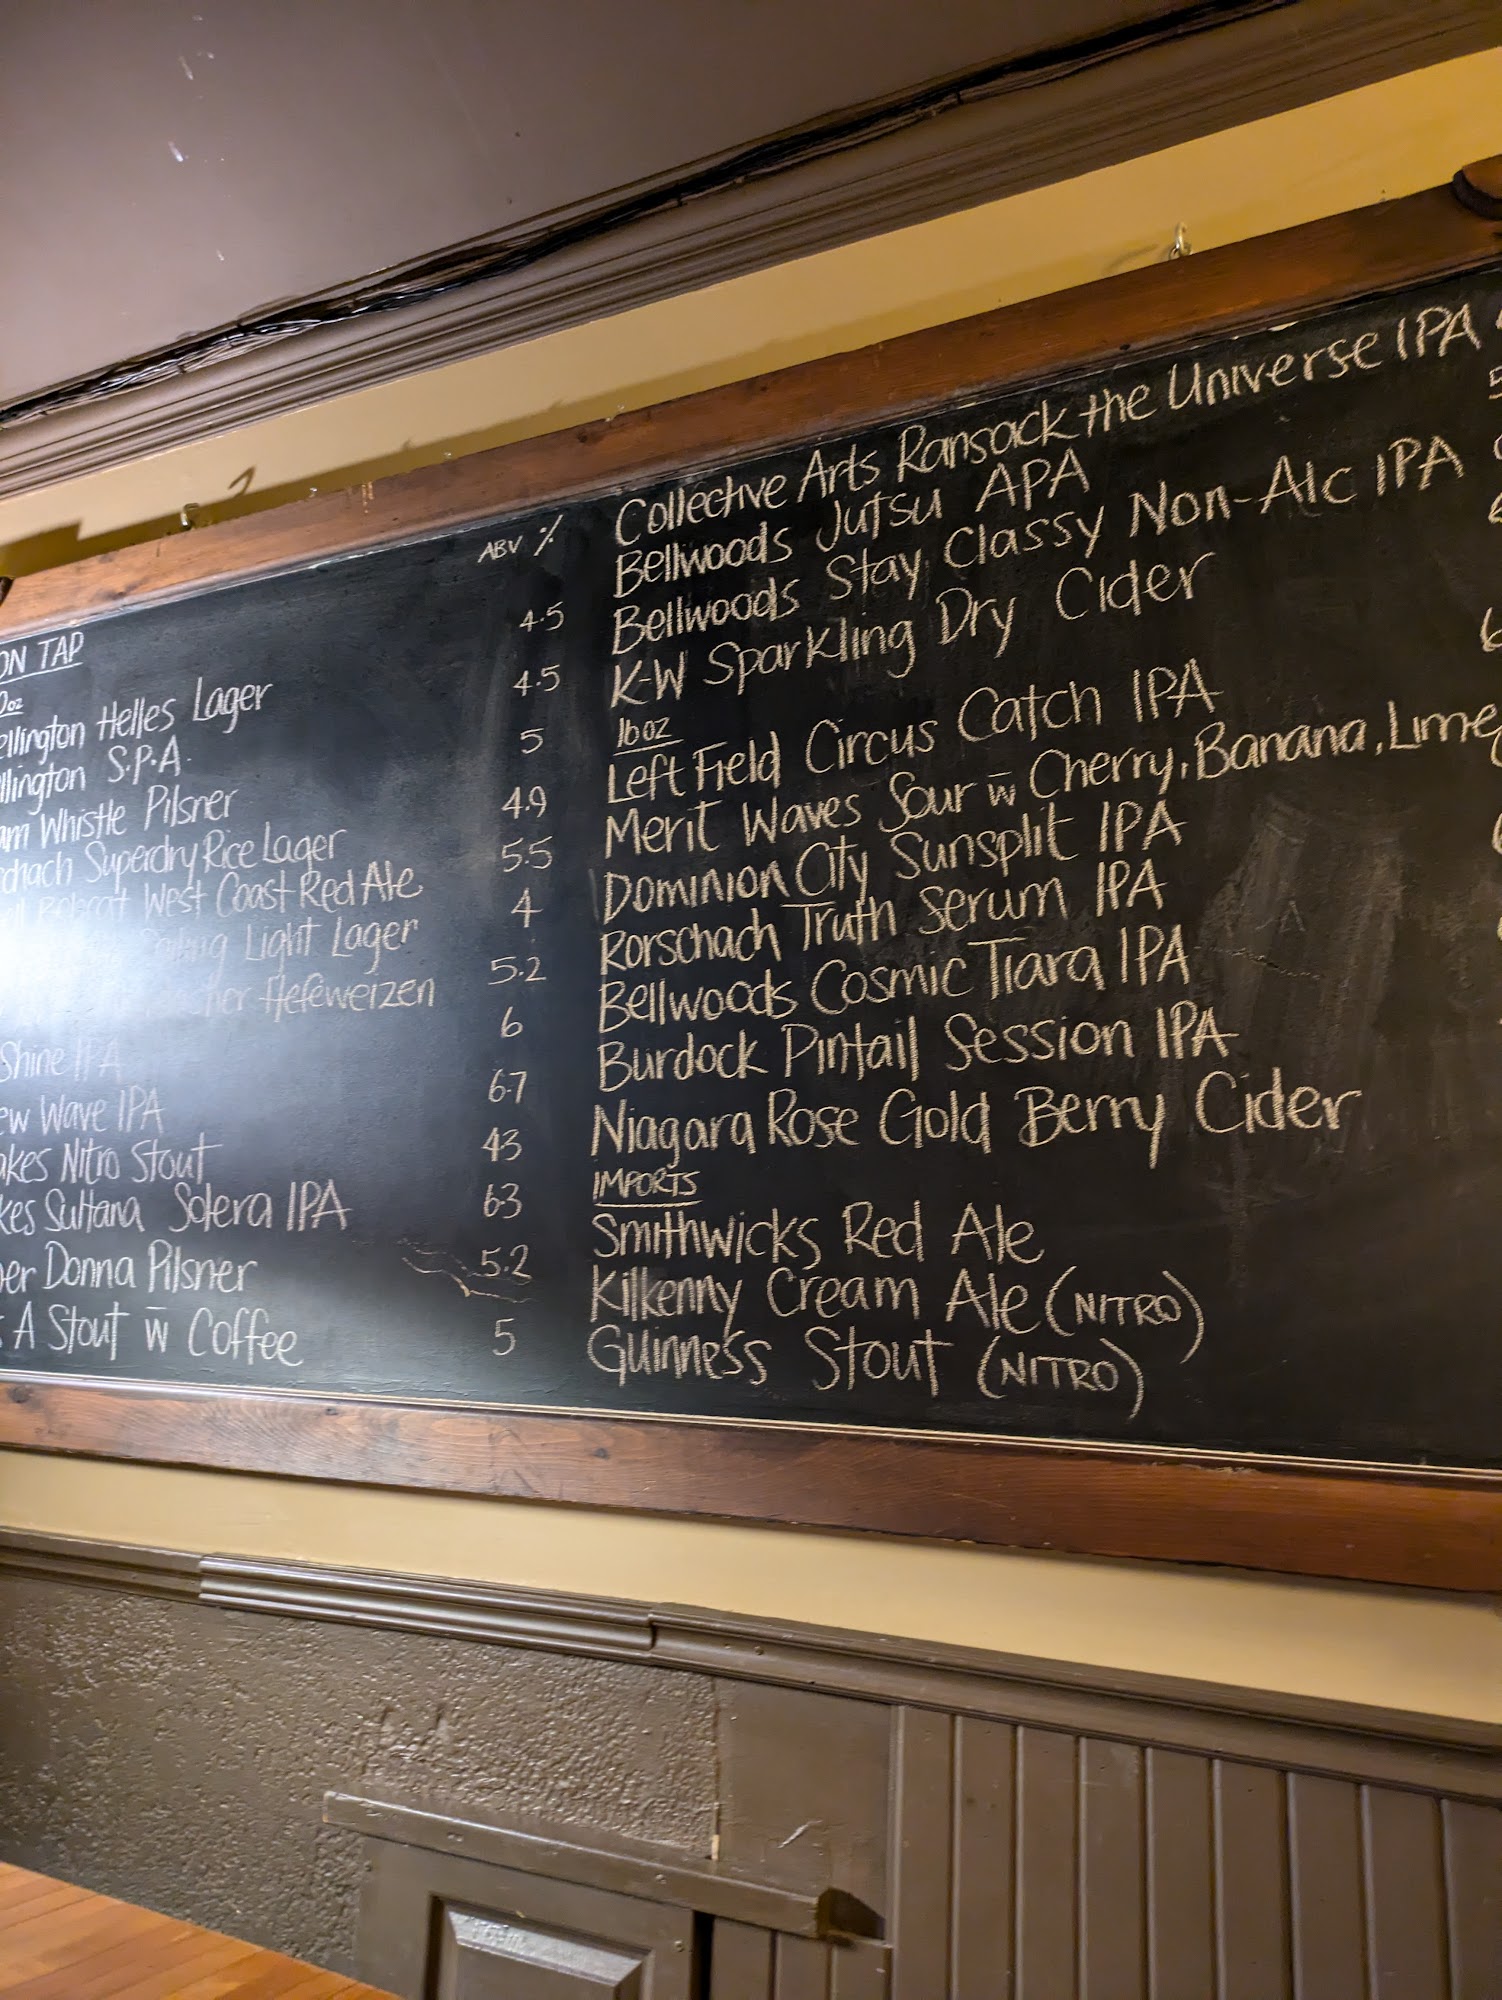 ON TAP
ABV %
oz
ellington Helles Lager 4.5
llington S.P.A. 4.5
am Whistle Pilsner 5
chach Superdry Rice Lager 4.9
Bobcat West Coast Red Ale 5.5
Light Lager 4
cher Hefeweizen 5.2
Shine IPA 6
ew Wave IPA 6.7
akes Nitro Stout 4.3
kes Sultana Solera IPA 6.3
er Donna Pilsner 5.2
A Stout w̄ Coffee 5
Collective Arts Ransack the Universe IPA
Bellwoods Jutsu APA 5
Bellwoods Stay Classy Non-Alc IPA
K-W Sparkling Dry Cider
16oz
Left Field Circus Catch IPA 6
Merit Waves Sour w̄ Cherry, Banana, Lime
Dominion City Sunsplit IPA
Rorschach Truth Serum IPA
Bellwoods Cosmic Tiara IPA
Burdock Pintail Session IPA
Niagara Rose Gold Berry Cider
IMPORTS
Smithwicks Red Ale
Kilkenny Cream Ale (NITRO)
Guinness Stout (NITRO)